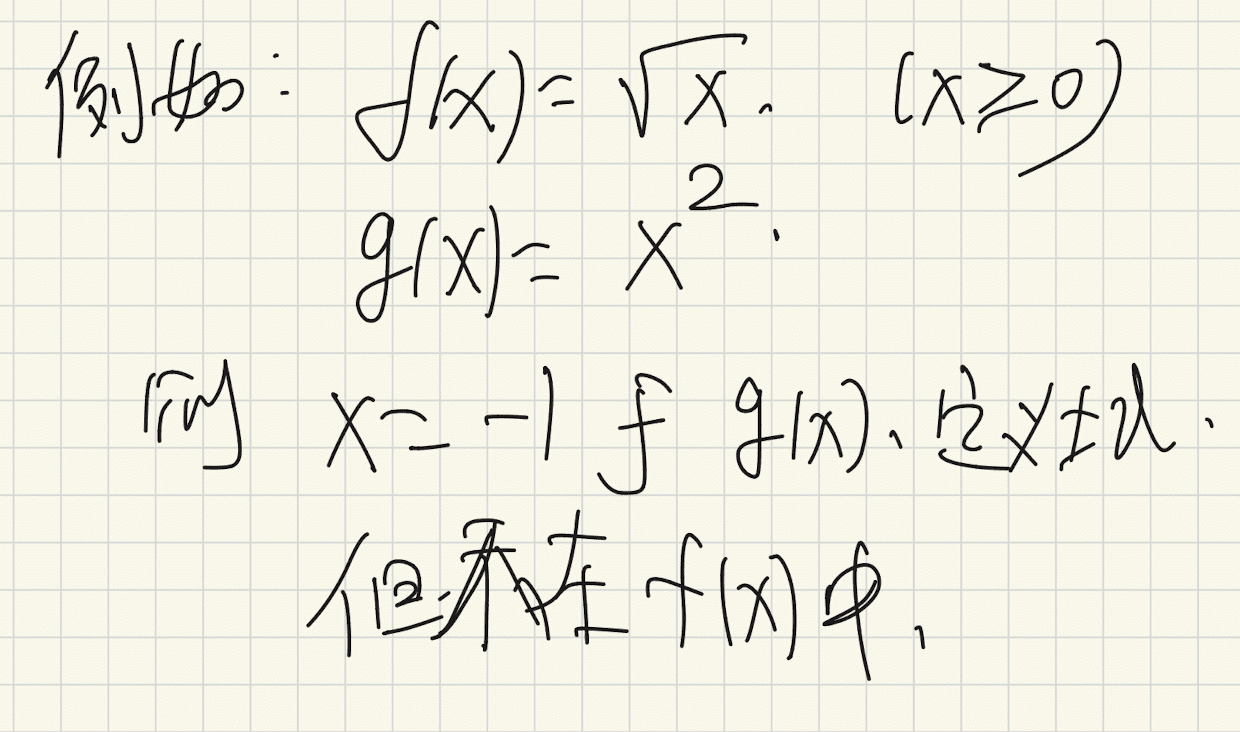 例如: f(x) = √x. (x ≥ 0)
g(x) = x².
则 x = -1 于 g(x), 定义域.
但不在 f(x) 中,